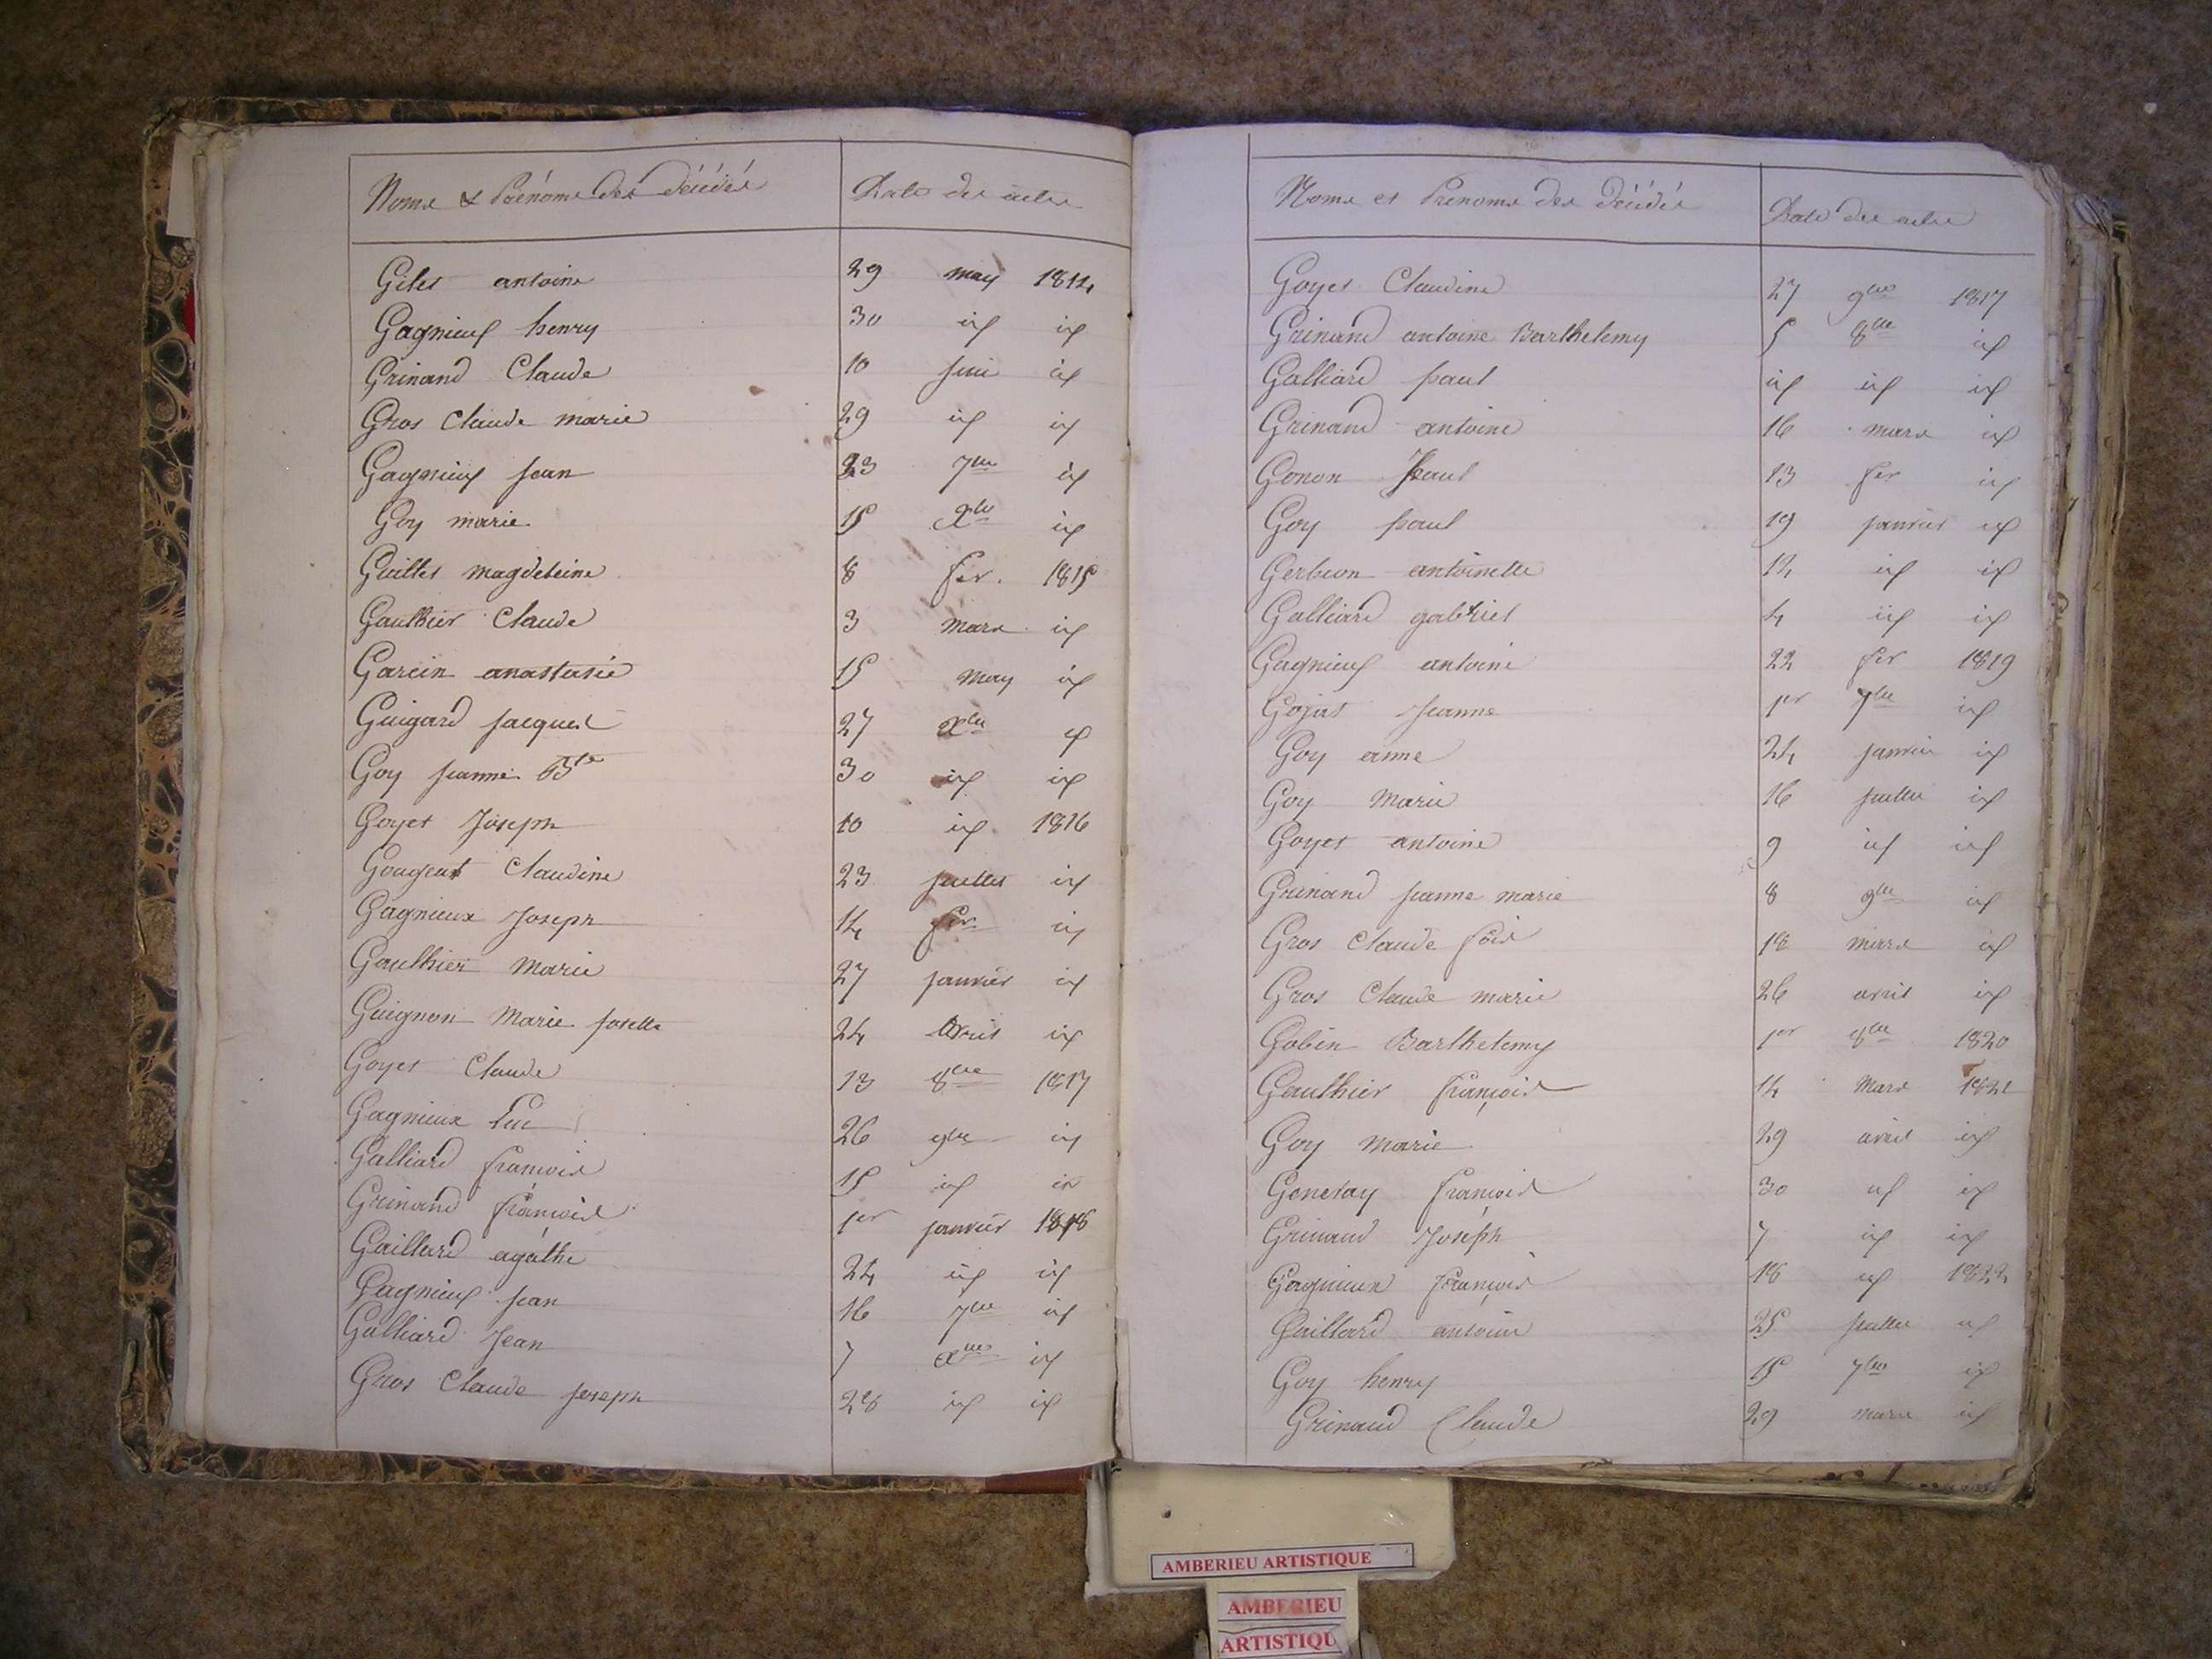 Noms & Prénoms des décédés Date des actes
Gilet antoine 29 may 1814
Gagnieux henry 30 id id
Grinand Claude 10 juin id
Gros Claude marie 29 id id
Gagnieux jean 23 7bre id
Goy marie 15 Xbre id
Guillet magdeleine 8 fer. 1815
Gauthier Claude 3 mars id
Garcin anastasie 15 may id
Guigard jacques 27 Xbre id
Goy jeanne Bte 30 id id
Goyet Joseph 10 id 1816
Goujeat Claudine 23 juillet id
Gagnieux Joseph 14 fer id
Gaulthier marie 27 janvier id
Guignon Marie josette 24 Avril id
Goyet Claude 13 8bre 1817
Gagnieux Luc 26 9bre id
Galliard françois 15 id id
Grinand françois 1er janvier 1818
Gaillard agathe 24 id id
Gagnieux jean 16 7bre id
Galliard Jean 7 Xbre id
Gros Claude joseph 28 id id
Noms et Prénoms des décédés Date des actes
Goyet Claudine 27 9bre 1817
Grinand antoine Barthelemy 5 8bre id
Galliard paul id id id
Grinand antoine 16 mars id
Gonon Paul 13 fer id
Goy paul 19 janvier id
Gerbeon antoinette 14 id id
Galliard gabriel 4 id id
Gagnieux antoine 22 fer 1819
Gojat Jeanne 1er 7bre id
Goy anne 24 janvier id
Goy Marie 16 juillet id
Goyet antoine 9 id id
Grinand jeanne marie 8 9bre id
Gros Claude fois 18 mars id
Gros Claude marie 26 avril id
Gobin Barthelemy 1er 8bre 1820
Gauthier françois 14 Mars 1821
Goy Marie 29 avril id
Genetay françois 30 id id
Grinand Joseph 7 id id
Gagnieux françois 18 id 1822
Gaillard antoine 25 juillet id
Goy henry 15 7bre id
Grinand Claude 29 mars id
AMBERIEU ARTISTIQUE
AMBERIEU
ARTISTIQU